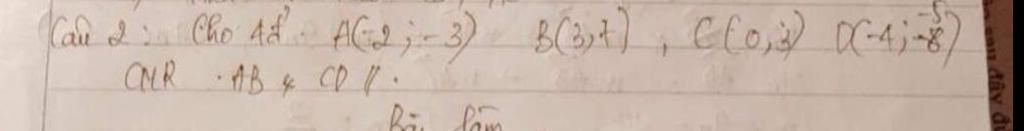 Câu 2: Cho 4đ². A(-2; -3) B(3;7), C(0;3) D(-4; -5)
CMR . AB & CD //.
Bài làm